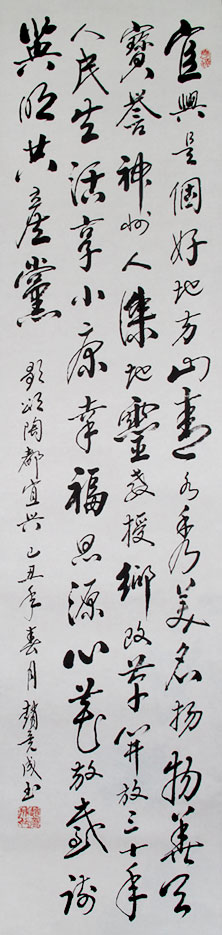 宜興是個好地方山水秀美名揚物華天
寶譽神州人傑地靈教授鄉改革開放三十年
人民生活享小康幸福思源心花放感謝
英明共產黨
歌頌陶都宜兴己丑年春月趙成书